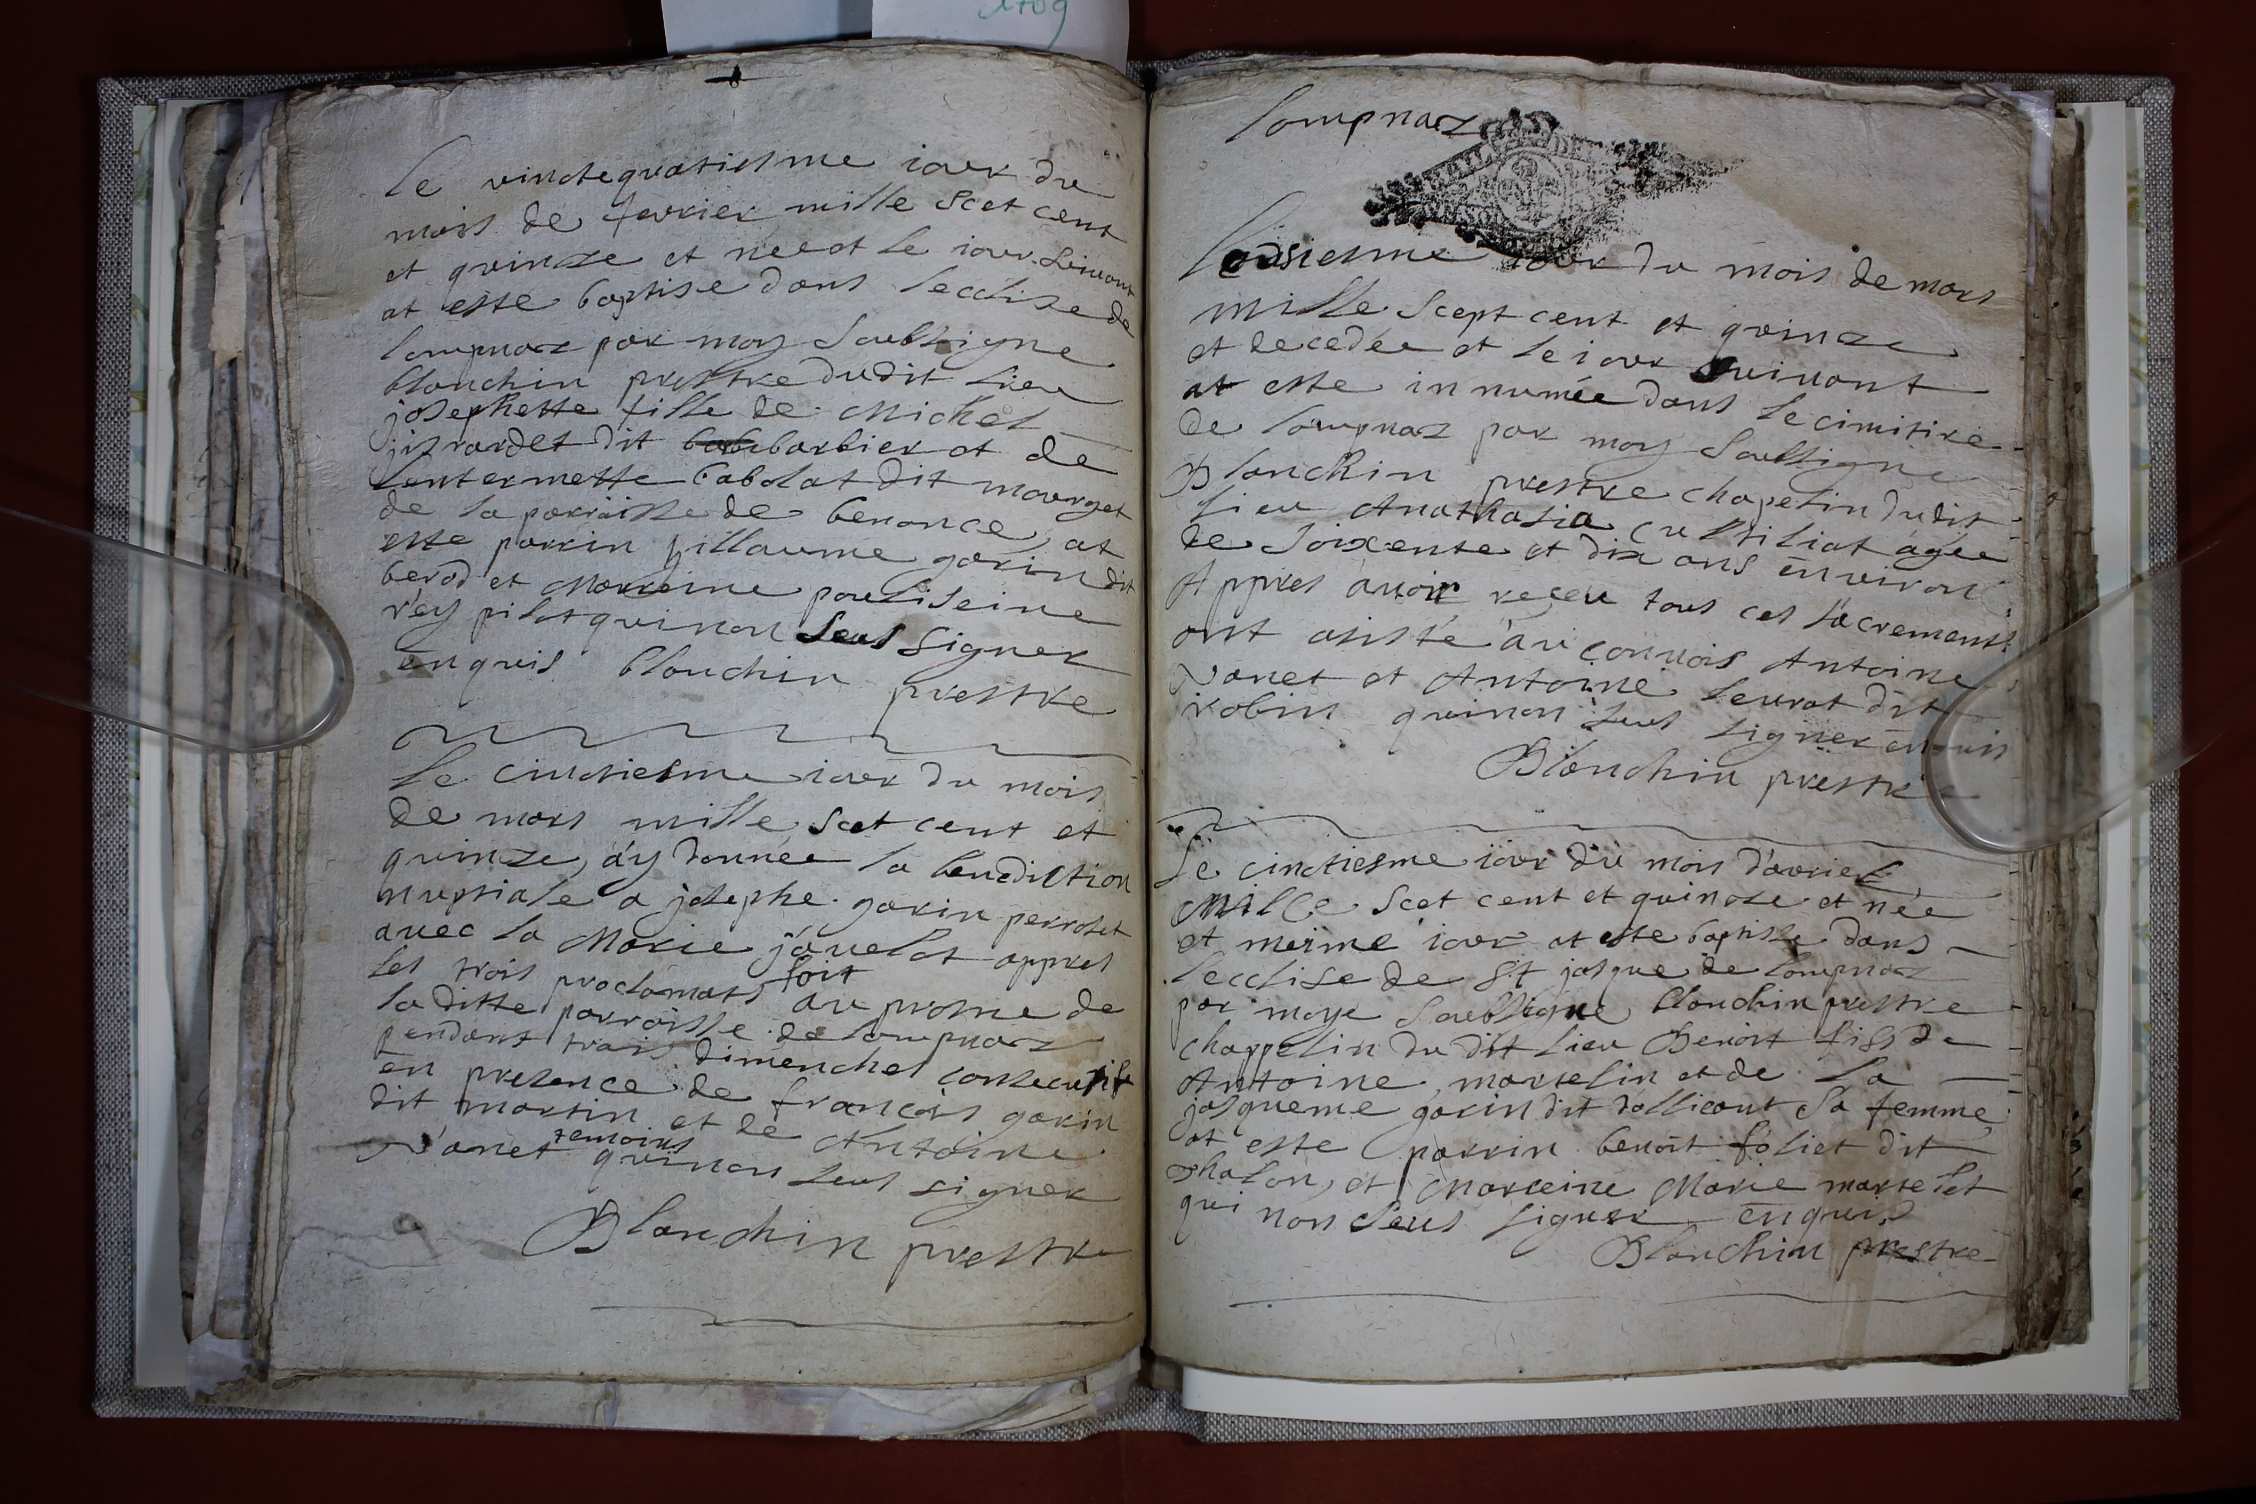 1709
le vinctequatiesme iour du
mois de fevrier mille scet cent
et quinze et neeot le iour suivont
at este baptise dans lecclise de
lompnaz par moy soubsigne
blanchin prestre dudit lieu
josephette fille de Michel
jirardet dit barbier et de
lentermette babolat dit mourget
de la parroisse de benonce, at
este parrin gillaume garin dit
berod et Marreine pouliseine
rey pilot quinon seus signer
enquis blanchin
prestre
Le cinctiesme iour du mois
de mars mille scet cent et
quinze, ay donnée la benediction
nuptiale a josephe garin perroset
avec la Marie javelot appres
les trois proclamats fait au prosne de
la ditte parroisse de lompnaz
pendant trois dimenches consecutifs
en presence de françois garin
dit martin et de Antoine
Vanet temoins quinon seus signer
Blanchin prestre
lompnaz
GEN DE
Le onsiesme iour du mois de mars
mille scept cent et quinze
et decedée et le iour suivont
at este innumée dans le cimitire
de lompnaz par moy soubsigne
Blanchin prestre chapelin dudit
lieu Anathasia Cultiliat agée
de soixente et dix ans environ
Appres avoir reçeu tous ces sacrements
ont asisté au convois Antoine
Vanet et Antoine leurat dit
robin quinon seus signer enquis
Blanchin prestre
Le cinctiesme iour du mois d'avriel
Mille scet cent et quinoze et née
et meime iour at este baptisse dans
lecclise de St jasque de lompnaz
par moye soubsigne blanchin prestre
chappelin du dit lieu Benoit fils de
Antoine martelin et de la
jasqueme garin dit dallicout sa femme
at este parrin benoit foliet dit
Phalon, et Marreine Marie martelet
qui non seus signer enquis
Blanchin prestre